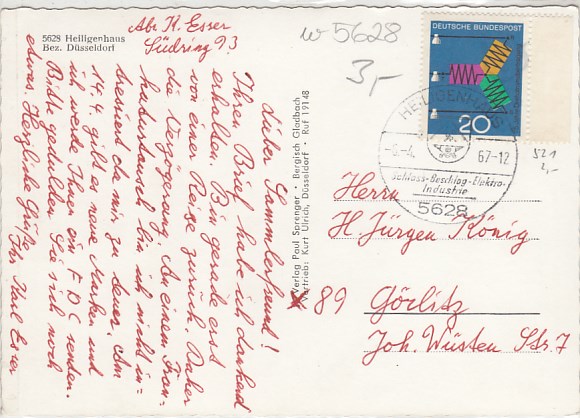 5628 Heiligenhaus
Bez. Düsseldorf
Abs. H. Esser
Südring 93
w 5628
3,-
Lieber Sammlerfreund!
Ihren Brief habe ich dankend
erhalten. Bin gerade erst
von einer Reise zurück. Daher
die Verzögerung. An einem Tran-
habartausch bin ich nicht in-
teressiert da mir zu teuer. Am
14.4. gibt es neue Marken und
ich werde Ihnen ein FDC senden.
Bitte gedulden Sie sich noch
etwas. Herzliche Grüße
Ihr Karl Esser
Verlag Paul Sprenger Bergisch Gladbach
Vertrieb: Kurt Ulrich, Düsseldorf · Ruf 19148
DEUTSCHE BUNDESPOST
20
HEILIGENHAUS
67-12
Schloss-Beschlag-Elektro-
Industrie
5628
521
2,-
Herrn
H. Jürgen König
89 Görlitz
Joh. Wüsten Str. 7